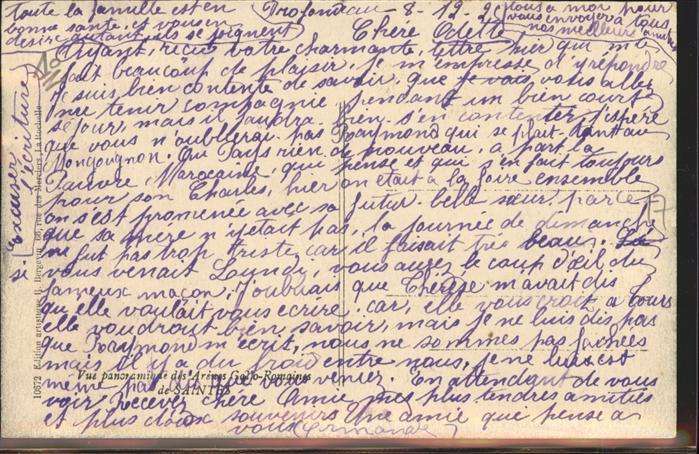 toute la famille est en
bonne santé et vous en
désire autant ils se joignent
tous à moi pour
vous envoyer à tous
nos meilleures amitiés
Profondeau 8-12-
Chère Odette
Ayant reçu votre charmante lettre hier qui m'a
fait beaucoup de plaisir, je m'empresse d'y répondre
je suis bien contente de savoir que je vais vous allez
me tenir compagnie pendant un bien court
séjour, mais il faudra bien s'en contenter, j'espère
que vous n'oublierai pas Raymond qui se plait tant au
Mongougnon. Au Pays rien de nouveau, à part la
Pauvre Marocaine qui pense et qui s'en fait toujours
pour son Charles, hier on était à la foire ensemble
on s'est promenée avec sa futur belle sœur, parce
que sa mère n'y était pas, la journée de dimanche
ne fut pas trop triste car il faisait très beau.
vous venait Lundi, vous aurez le coup d'œil du
fameux maçon, j'oubliais que Thérèse m'avait dis
qu'elle voulait vous écrire, car, elle vous croit à Tours
elle voudrait bien savoir, mais je ne lui dis pas
que Raymond m'écrit, nous ne sommes pas fachées
mais il y a du froid entre nous, je ne lui est
même pas dis que vous venier. En attendant de vous
voir recevez chère Amie mes plus tendres amitiés
et plus doux souvenirs Une amie qui pense à
vous Germande
Excuser
l'écriture
17
10672 Edition artistique
Vue panoramique des Arènes Gallo-Romaines
de SAINTES